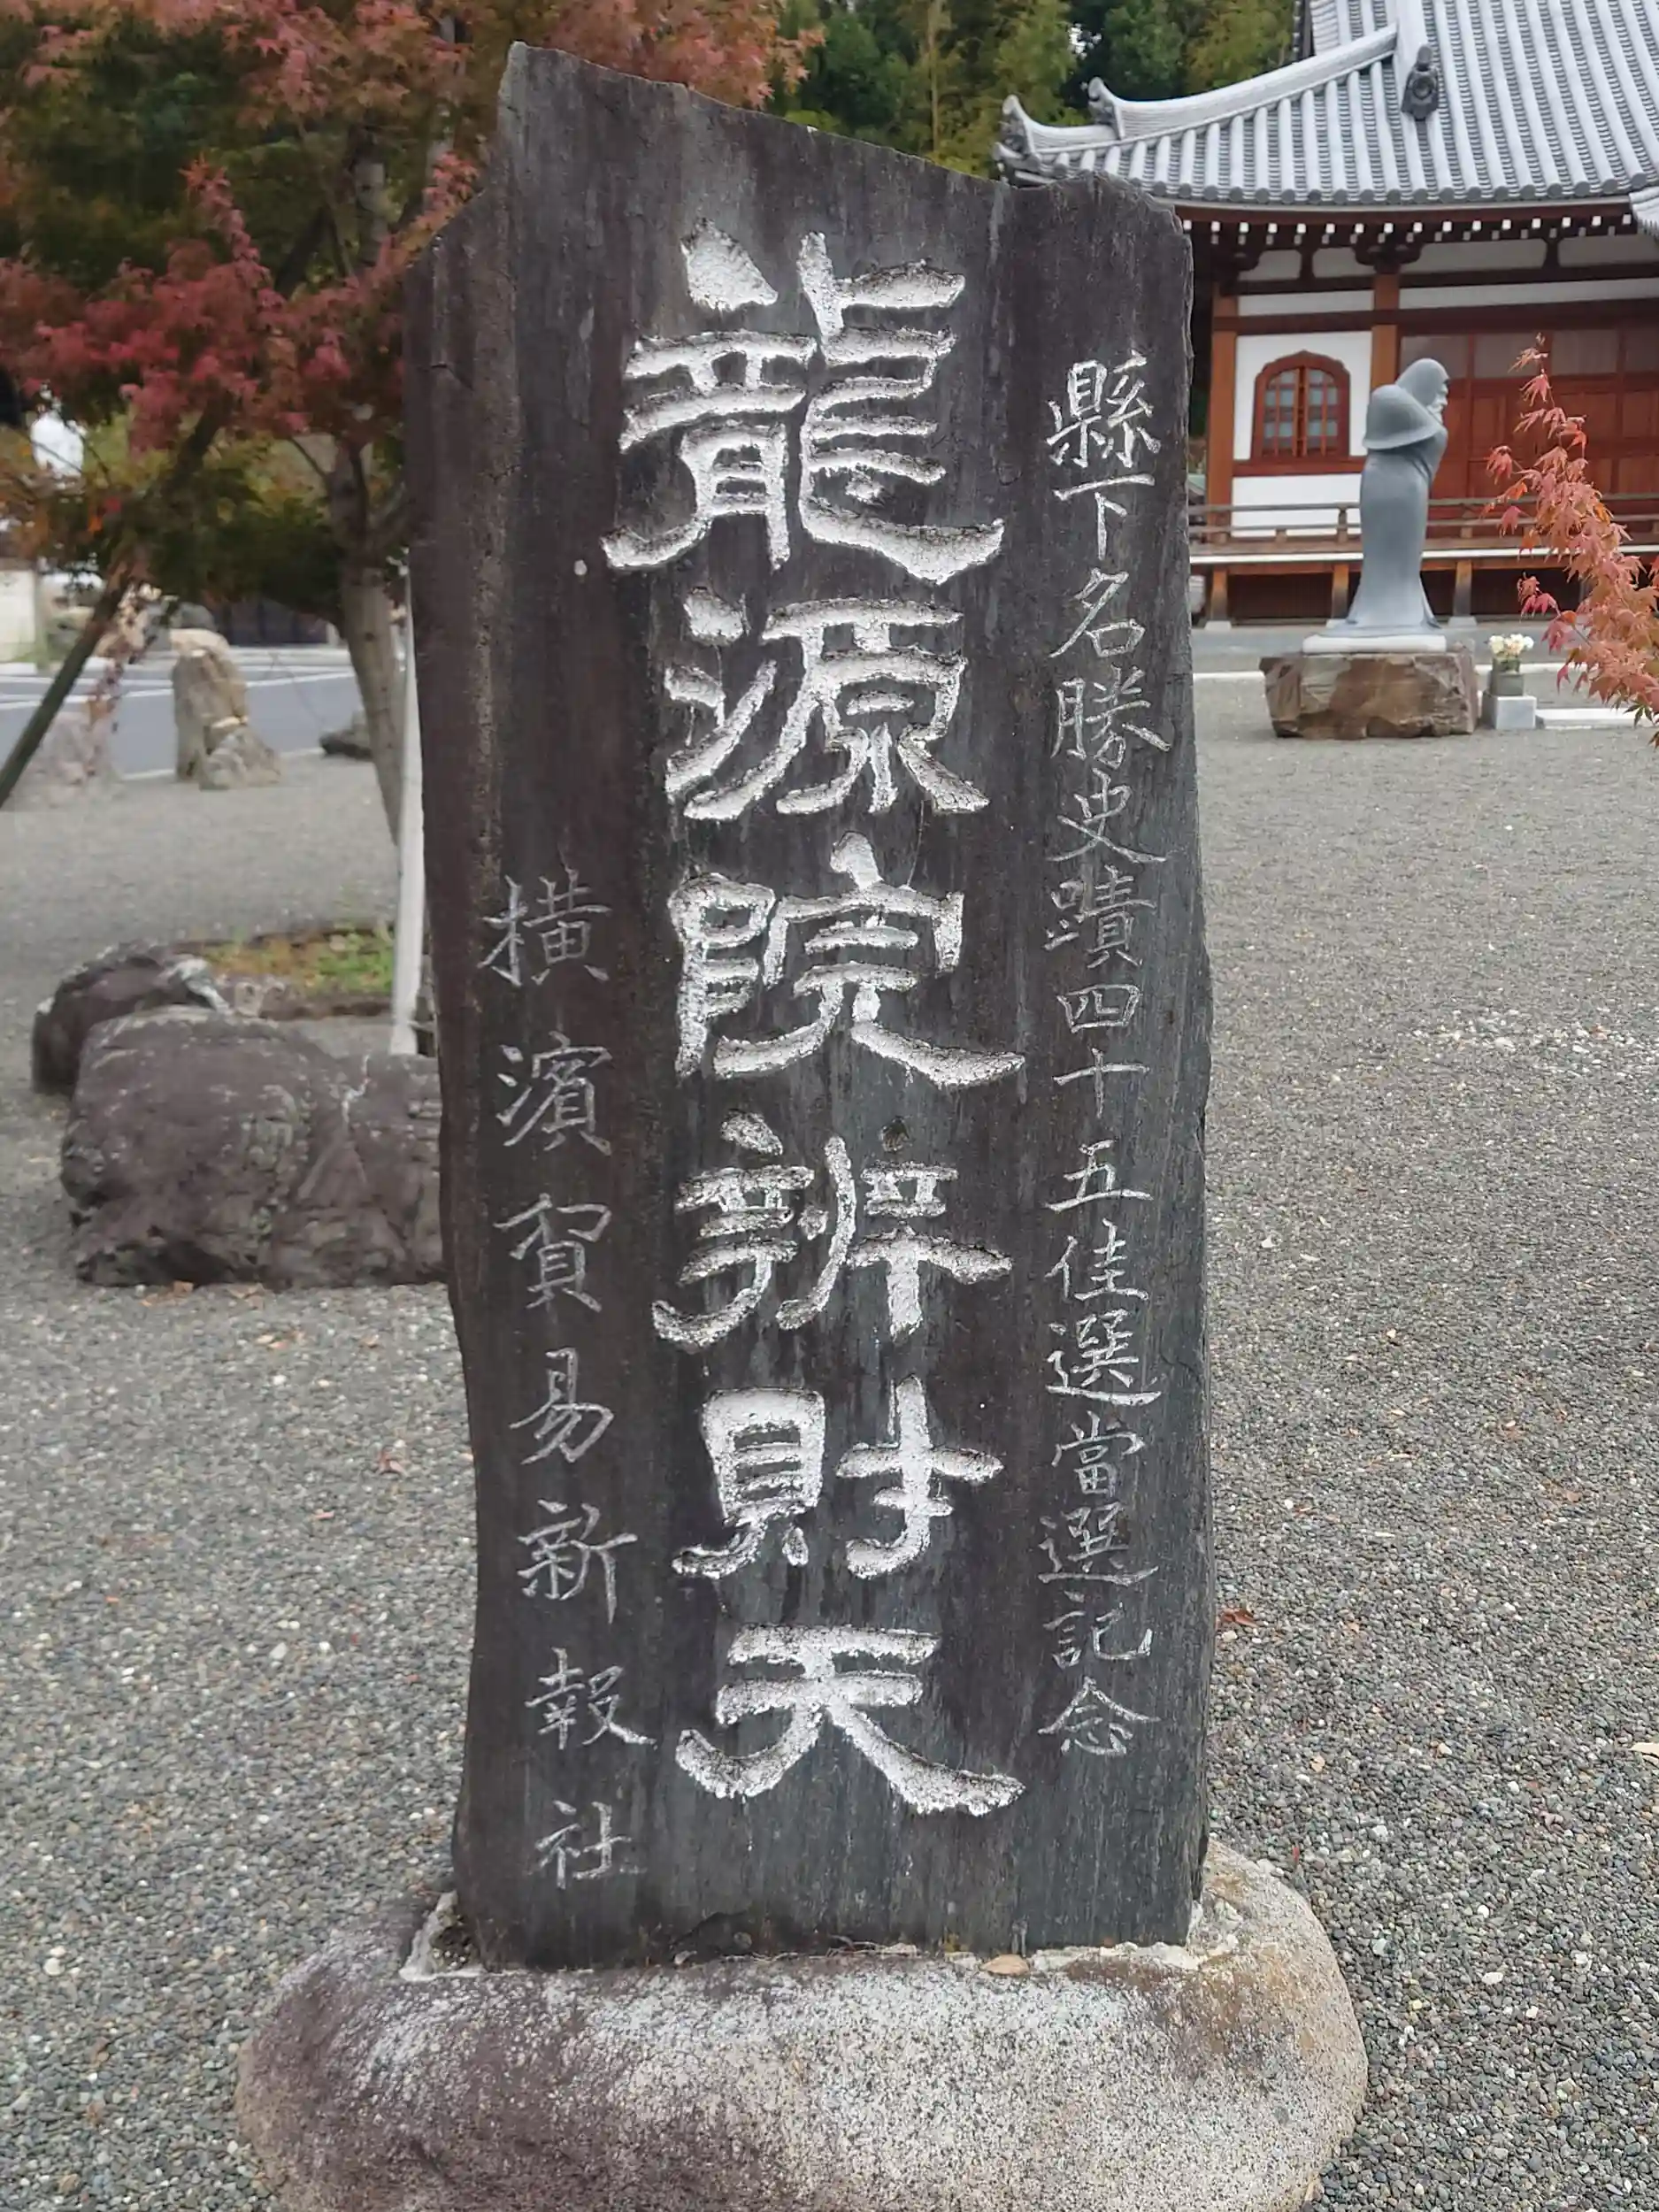 縣下名勝史蹟四十五佳選當選記念
龍源院辨財天
横濱貿易新報社